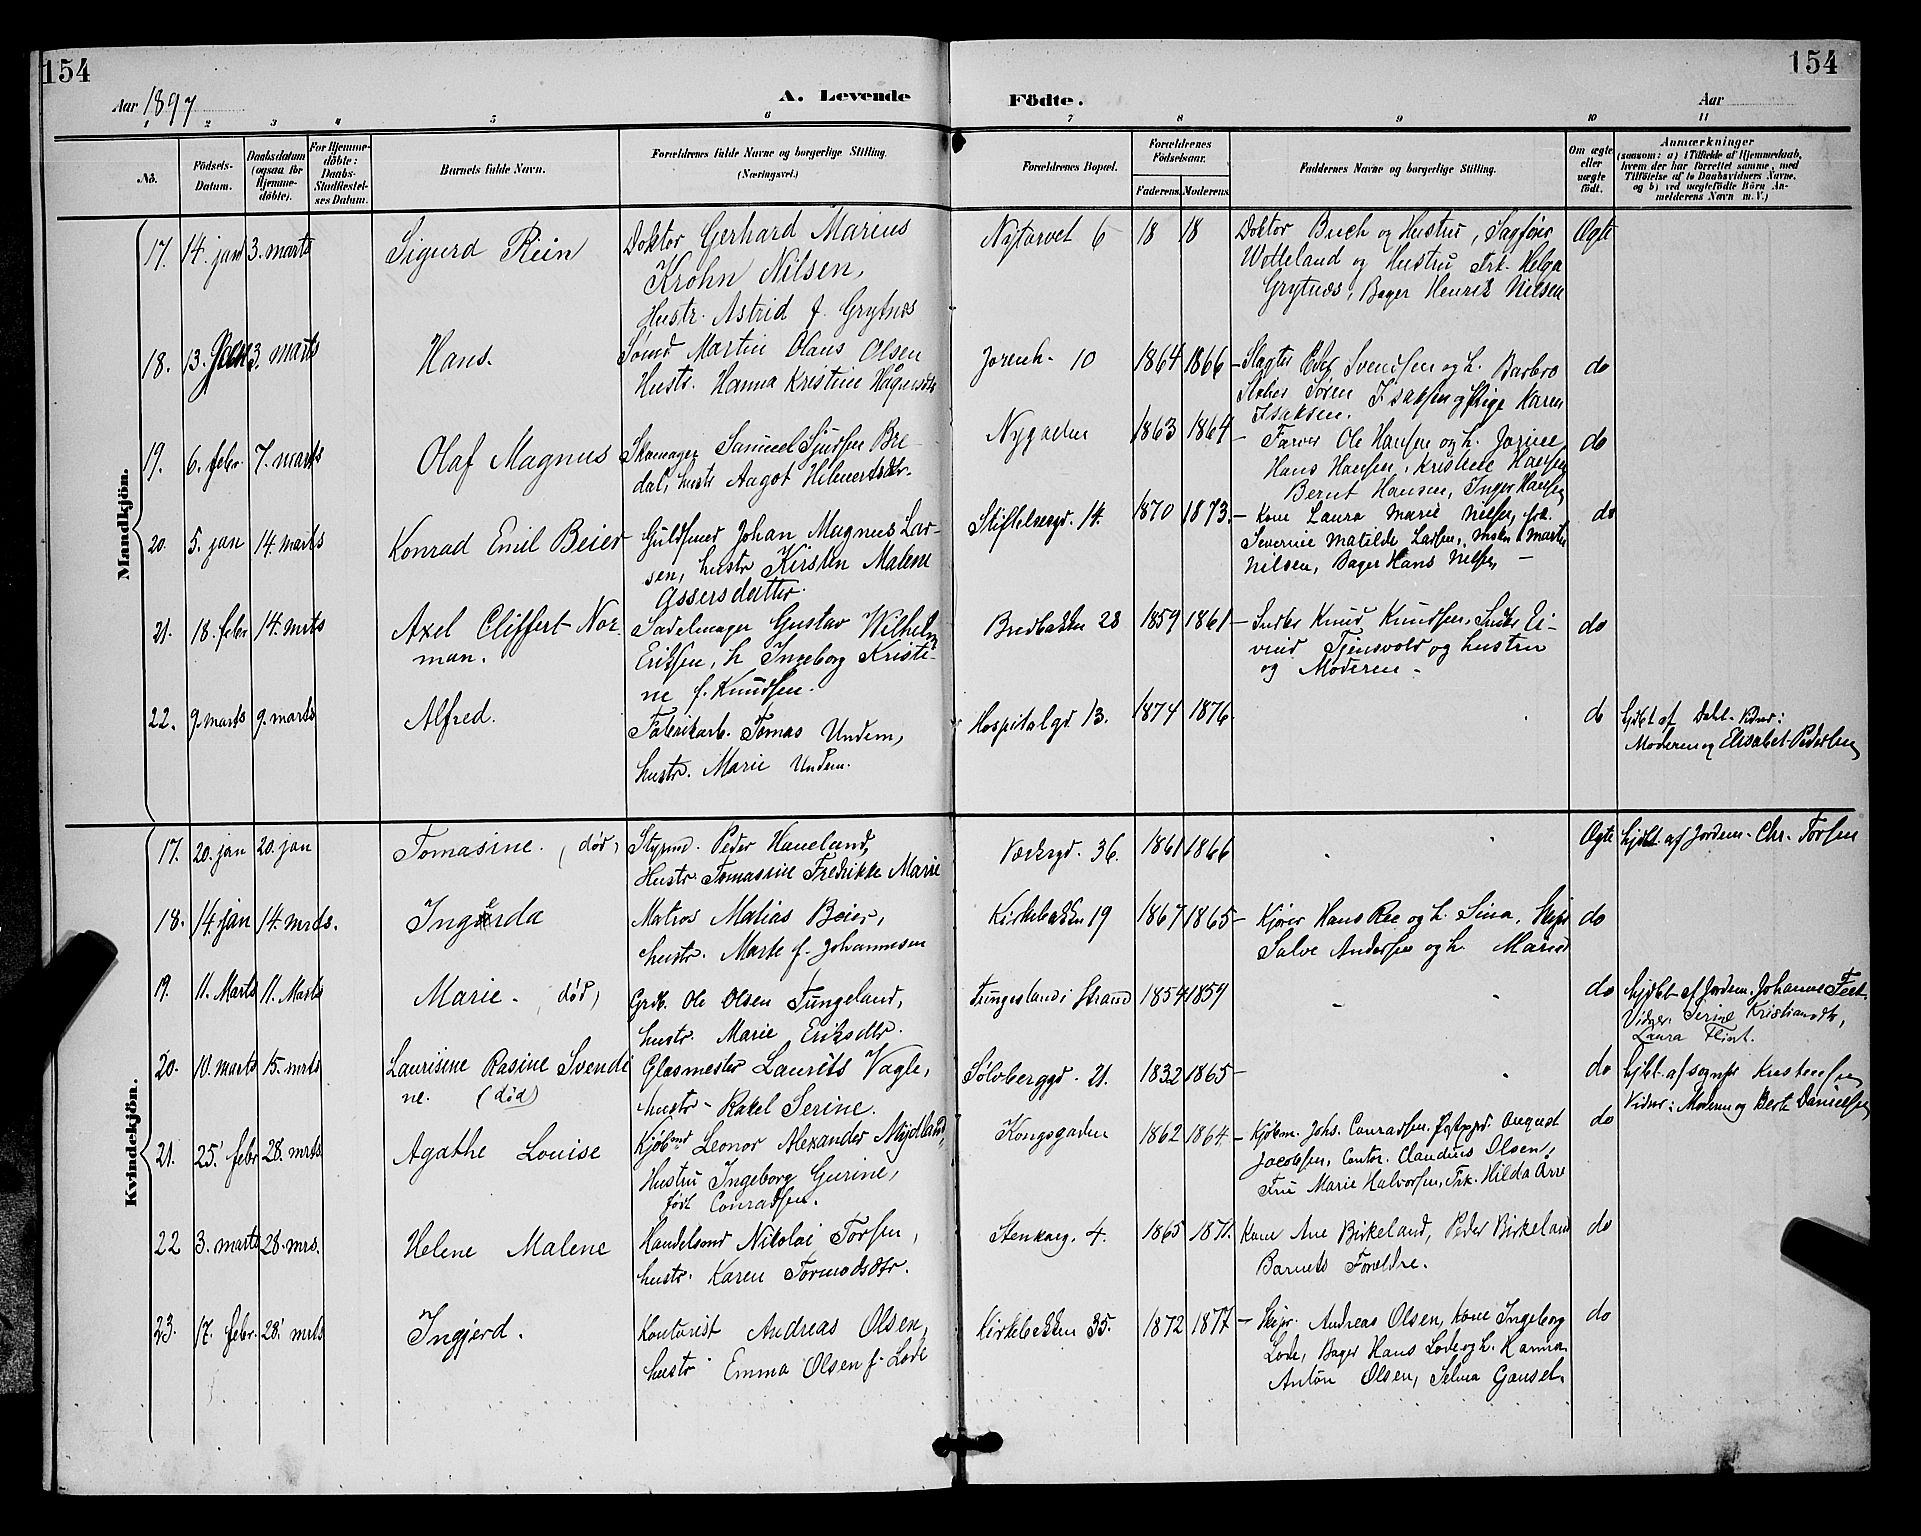 154
154
Aar 1897
A. Levende
Födte.
Aar
1 2 3 4 5 6 7 8 9 10 11
No.
Födsels-
Datum.
Daabsdatum
(ogsaa for
Hjemme-
döbte).
For Hjemme-
döbte:
Daabs-
Stadfæstel-
ses Datum.
Barnets fulde Navn.
Forældrenes fulde Navne og borgerlige Stilling.
(Næringsvei.)
Forældrenes Bopæl.
Forældrenes
Födselsaar.
Faderens.
Moderens.
Faddernes Navne og borgerlige Stilling.
Om ægte
eller
uægte
født.
Anmærkninger
(saasom: a) i Tilfælde af Hjemmedaab,
hvem der har forrettet samme, med
Tilföielse af to Daabsvidners Navne,
og b) ved uægtefödte Börn An-
melderens Navn m. V.)
Mandkjön.
17. 14. jan 3. marts Sigurd Rein
Doktor Gerhard Marius
Krohn Nilsen,
Hustr. Astrid f. Grytnæs
Nytorvet 6 18 18
Doktor Buch og Hustru, Sagfører
Wotteland og Hustru Frk. Helga
Grytnæs, Bager Henrik Nielsen
Ægte
18. 13. Jan 3. marts Hans.
Sømd Martin Olaus Olsen
Hustr. Hanna Kristine
Jorenh. 10 1864 1866
Slagter Svendsen og h. Barbro
Søren Isaksen og Pige Karen
Isaksen.
do
19. 6. febr. 7. marts Olaf Magnus
Skomager Samuel Sjurdsen Bre-
dal, hustr Aagot Helmersdtr.
Nygaden 1863 1864
Farver Ole Hansen og h. Jorine,
Hans Hansen, Kristine Hansen
Bernt Hansen, Inger Hansen
do
20. 5. jan 14. marts Konrad Emil Beier
Guldsmed Johan Magnus Lar-
sen, hustr Kirsten Malene
Assersdatter.
Stiftelsesgd. 14. 1870 1873.
Kone Laura Marie Nilsen, frk.
Severine Matilde Larsen, Martin
Nilsen, Bager Hans Nilsen,
do
21. 18. febr 14. mrts Axel Cliffert Nor-
man.
Sadelmager Gustav Wilhelm
Eriksen, h Ingeborg Kristi-
ne f. Knudsen.
Bredbakken 28 1859 1861
Knud Knudsen, Ei-
vind Tjensvold og hustru
og Moderen
do
22. 9. marts 9. marts Alfred.
Fabrikarb. Tomas Undem,
hustr. Marie Undem.
Hospitalgd 13. 1874 1876.
do
hjdbt af Dahl
Moderen og Elisabet Pedersen
Kvindekjön.
17. 20. jan 20. jan Tomasine. (død)
Styrmd. Peder Haneland,
Hustr. Tomasine Fredrikke Marie
Verksgd. 36. 1861 1866
Ægte
hjdbt. af Jordem. Chr. Torsen
18. 14. jan 14. mrts. Ingerda
Matros Matias Beier,
hustr. Marte f. Johannesen
Kirkebakken 19 1867 1865
Kjører Hans Ree og h. Sina, Skipr
Salve Andersen og h. Marie
do
19. 11. Marts 11. Marts Marie. død,
Grdb. Ole Olsen Tungeland,
hustr. Marie Eriksdtr.
Tungeland i Strand 1854 1859
do
hjdbt af Jordem. Johanne Feet.
Vidner: Serine Kristiansdtr,
Laura Flint.
20. 10. marts 15. mrts Laurisene Rasine Svendi
ne. (død)
Glasmester Laurits Vagle,
hustr Rakel Serine.
Sølvberggd. 21. 1832 1865
do
hjdbt. af sognepr Kristensen
Vidnr: Moderen og Berte Danielsen
21. 25. febr 28. mrts Agathe Louise
Kjøbmd Leonor Alexander Mydland,
Hustru Ingeborg Gurine,
født Conradsen.
Kongsgaden 1862 1864
Kjøbm. Johs. Conradsen, August
Jacobsen, Cantor. Claudius Olsen,
Fru Marie Halvorsen, Frk. Hilda Arre
do
22 3. marts 28. mrs. Helene Malene
Handelsmd Nikolai Torsen,
hustr. Karen Tormodsdtr.
Stenkarg. 4. 1865 1871.
Kone Ane Birkeland, Peder Birkeland
Barnets Forældre.
do
23. 17. febr. 28. mrts Ingjerd.
Kontorist Andreas Olsen,
hustr Emma Olsen f. Lode
Kirkebakken 35. 1872 1877
Skipr. Andreas Olsen, Kone Ingeborg
Lode, Bager Hans Lode og h. Hanna
Anton Olsen, Selma Gausel.
do